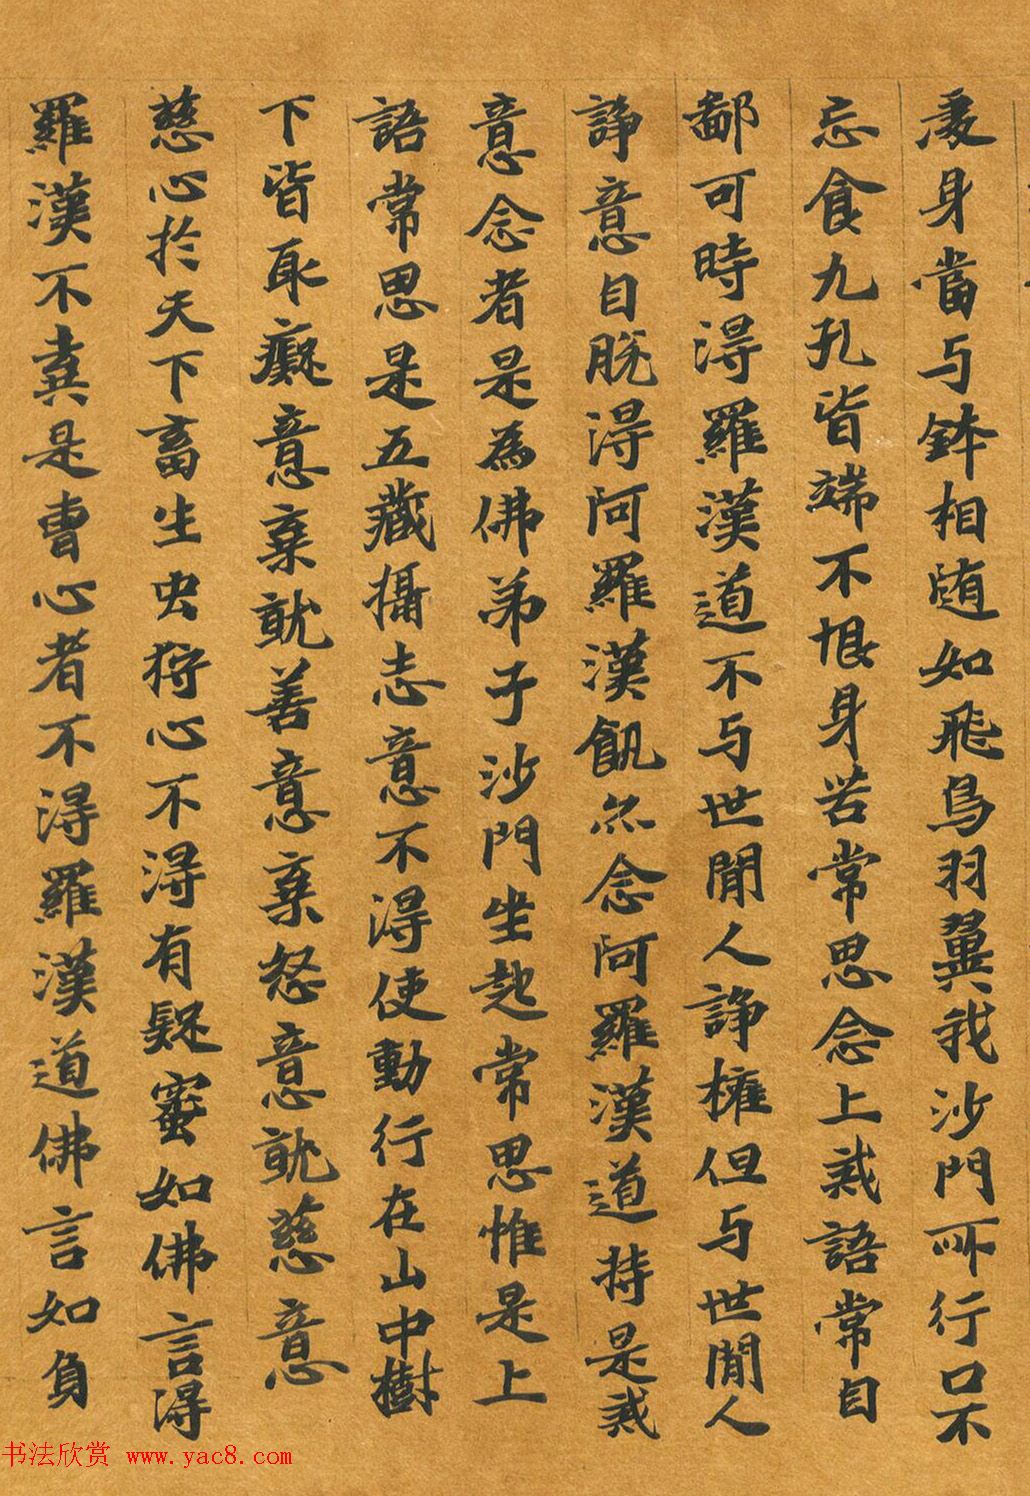 憂身當与鉢相随如飛鳥羽翼我沙門所行口不
忘食九孔皆端不恨身苦常思念上戒語常自
鄙可時淂羅漢道不与世閒人諍擁但与世閒人
諍意自脱淂阿羅漢飢亦念阿羅漢道持是戒
意念者是為佛弟子沙門坐起常思惟是上
語常思是五藏攝志意不淂使動行在山中樹
下皆取癡意棄就善意棄怒意就慈意
慈心於天下畜生虫狩心不淂有疑蜜如佛言淂
羅漢不真是曹心者不淂羅漢道佛言如負
书法欣赏 www.yac8.com